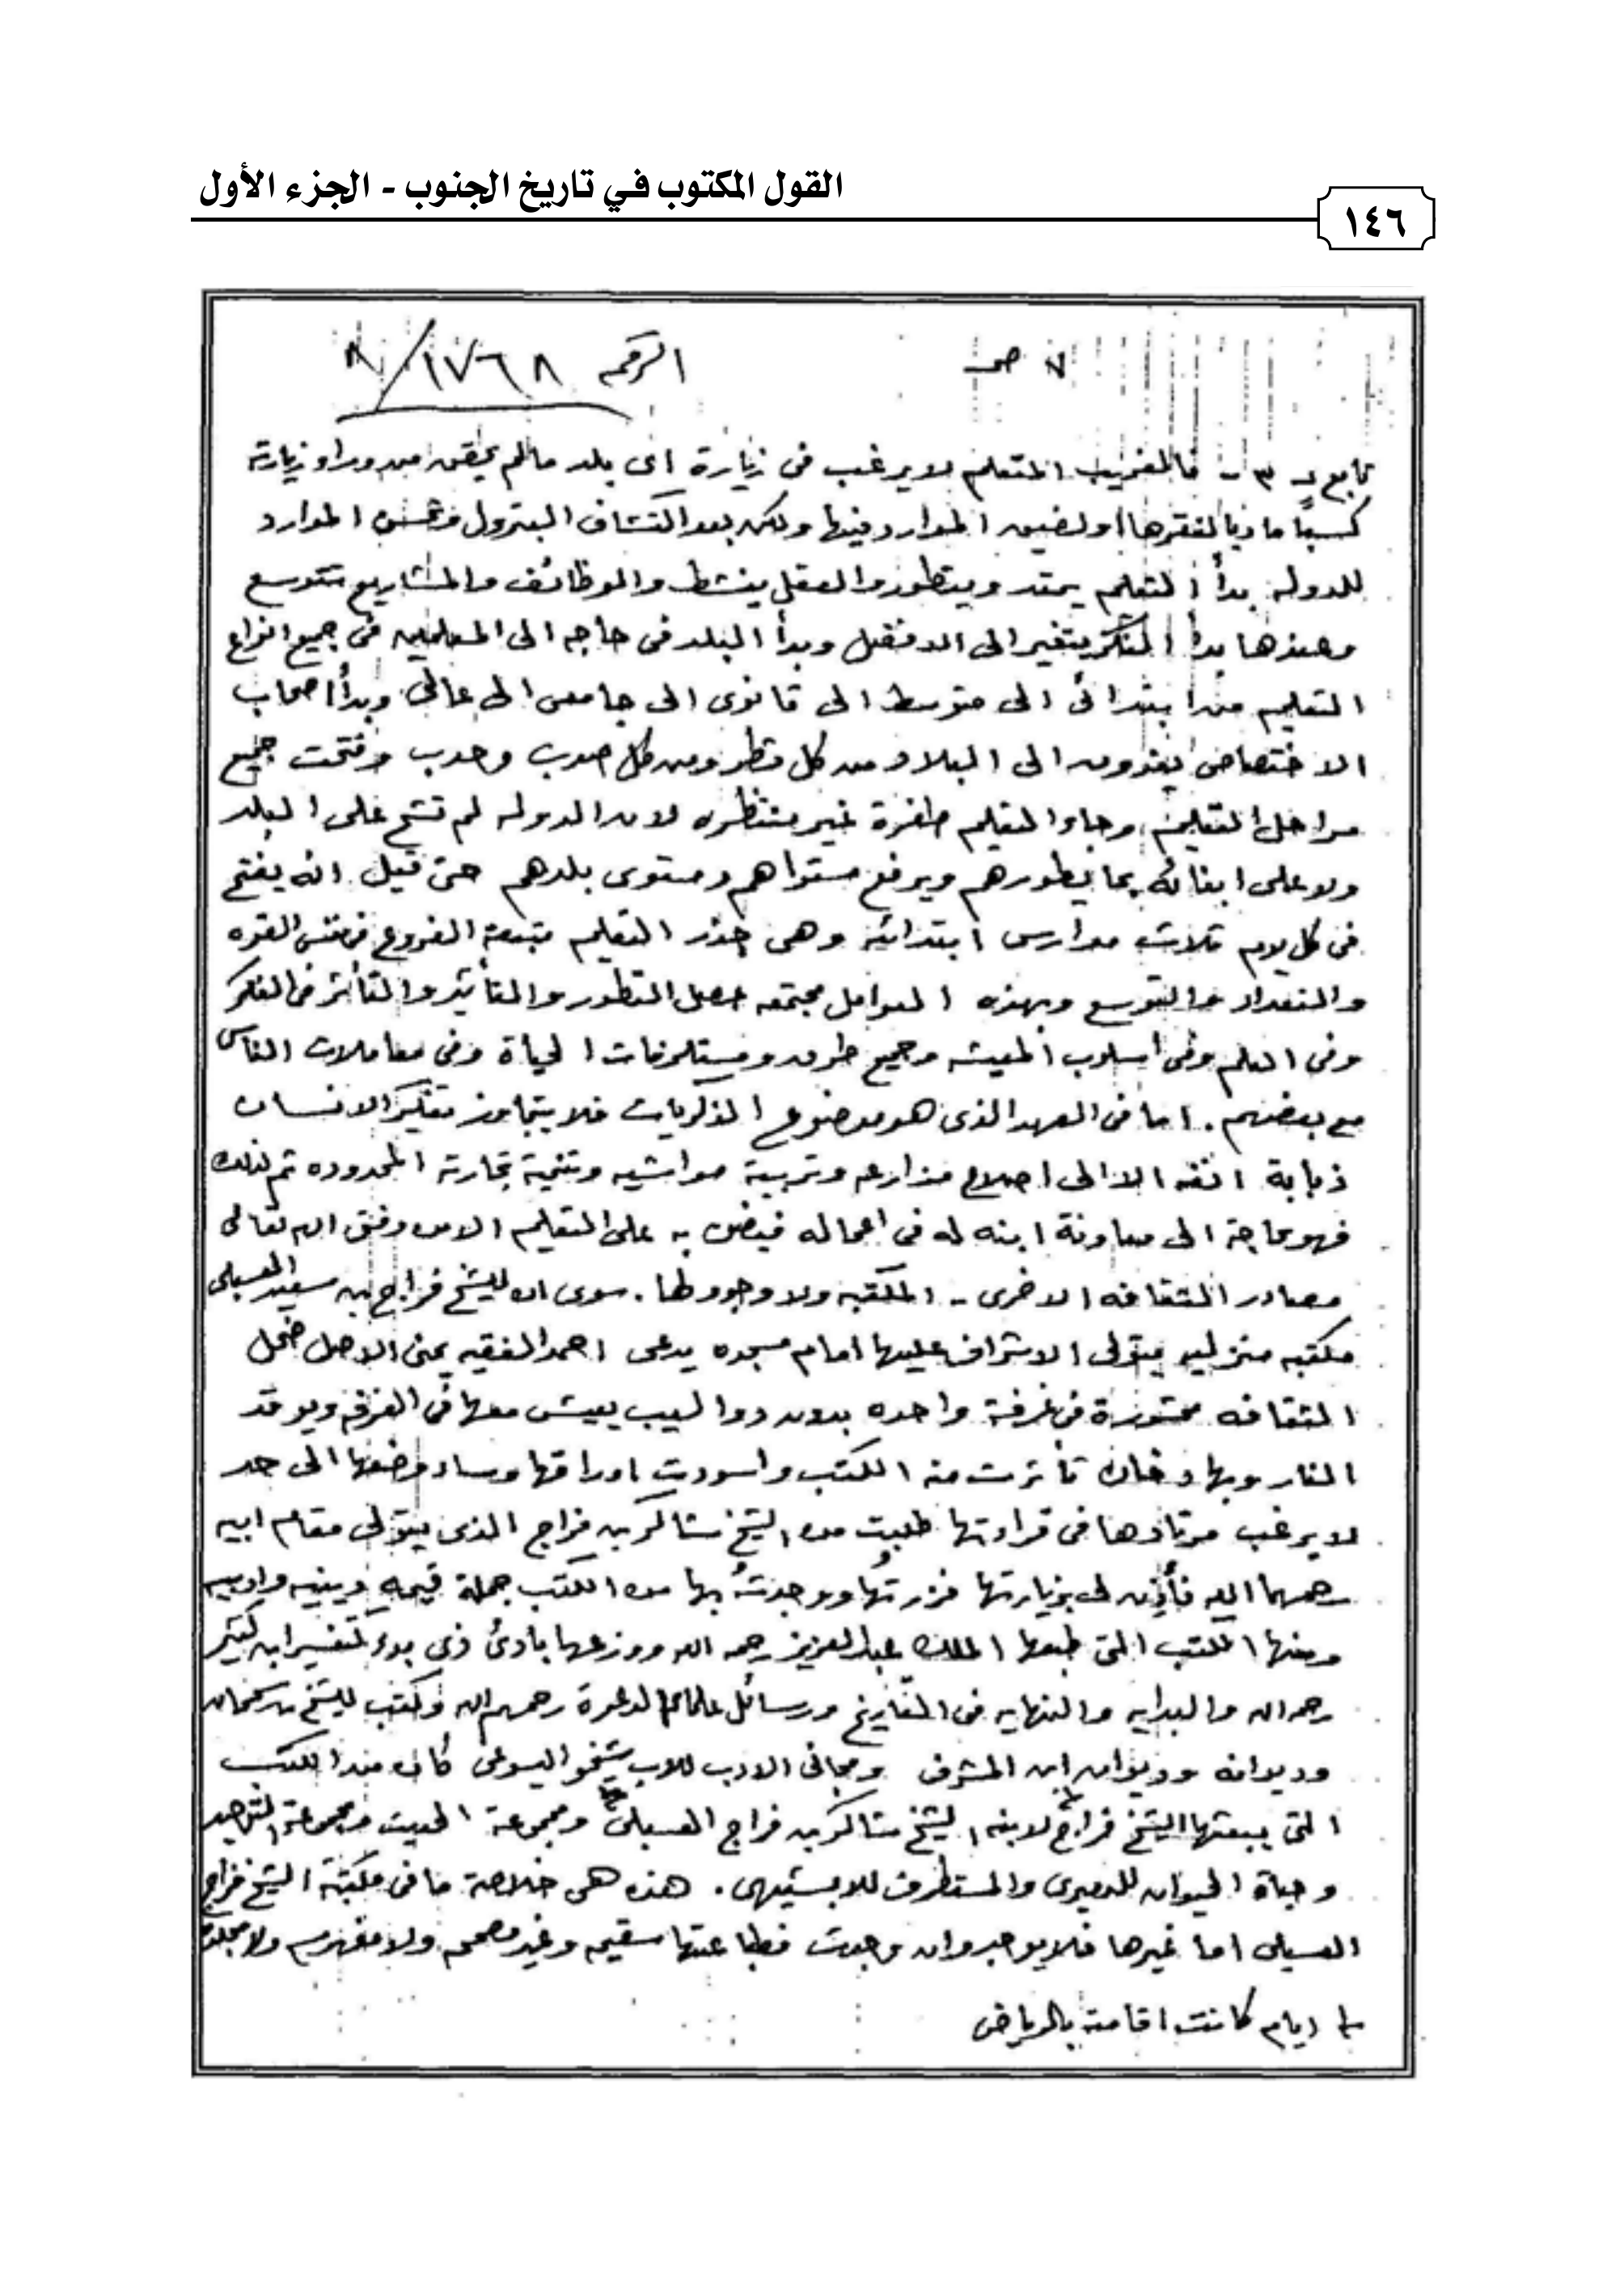 القول المكتوب في تاريخ الجنوب - الجزء الأول
١٤٦
٧ ص الرقم ١٧٦٨/٨
تابع ٣- فالغريب المتعلم لا يرغب في زيارة اى بلد مالم يحقق من وراء زيارته
كسبًا ماديا لفقرها أو لضيق الموارد فيها ولكن بعد اكتشاف البترول وتحسن الموارد
للدوله بدأ التعليم يمتد ويتطور والعقل ينشط والوظائف والمشاريع تتوسع
وعندها بدأ الفكر يتغير الى الافضل وبدأ البلد في حاجه الى المعلمين في جميع انواع
التعليم من ابتدائى الى متوسط الى ثانوى الى جامعى الى عالى وبدأ اصحاب
الاختصاص يفدون الى البلاد من كل قطر ومن كل صوب وحدب وفتحت جميع
مراحل التعليم وجاء التعليم طفرة غير منتظره لان الدوله لم تشح على البلد
ولا على ابنائه بما يطورهم ويرفع مستواهم ومستوى بلدهم حتى قيل انه يفتح
في كل يوم ثلاث مدارس ابتدائيه وهى جذر التعليم بتبعية الفروع في نفس القوه
والتعداد والتوسع وبهذه العوامل مجتمعه حصل التطور والتأثير والتأثر في الفكر
وفى العلم وفى اسلوب المعيشه وجميع طرق ومستلزمات الحياة وفى معاملات الناس
مع بعضهم . اما في العهد الذى هو موضوع الذكريات فلا يتجاوز تفكير الانسان
ذبابة انفه الا الى اصلاح مزارعه وتربية مواشيه وتنمية تجارته المحدوده ثم لذلك
فهو بحاجة الى معاونة ابنه له في اعماله فيضن به على التعليم الا من وفق الله تعالى
مصادر الثقافه الاخرى - المكتبه ولا وجود لها . سوى ان للشيخ فراج بن سعيد العسبلى
مكتبه منزليه يتولى الاشراف عليها امام مسجده يدعى احمد الفقيه يمنى الاصل ضحل
الثقافه محشورة في غرفة واحده بدون دواليب يعيش معها في الغرفه ويوقد
النار وبها دخان تأثرت منه الكتب واسودت اوراقها وساء وضعها الى حد
لا يرغب مرتادها في قراءتها طلبت من الشيخ شاكر بن فراج الذى يتولى مقام ابيه
رحمهما الله فأذن لى بزيارتها فزرتُها ووجدتُ بها من الكتب جملة قيمه دينيه وادبيه
ومنها الكتب التى طبعها الملك عبدالعزيز رحمه الله ووزعها بادئ ذى بدء كتفسير ابن كثير
رحمه الله والبدايه والنهايه في التاريخ ورسائل علماء الدعوة رحمهم الله وكتب للشيخ بن سحمان
وديوانه وديوان ابن المشرف ومجانى الادب للاب شيخو اليسوعى كان من الكتب
التى يبعثها الشيخ فراج لابنه الشيخ شاكر بن فراج العسبلى ومجموعة الحديث ومجموعة التوحيد
وحياة الحيوان للدميرى والمستطرف للابشيهى . هذه هى خلاصة ما في مكتبة الشيخ فراج
العسبلى اما غيرها فلا يوجد وان وجدت فطباعتها سقيمه وغير مصححه ولا مفهرسه ولا مجلده
ايام كانت اقامته بالرياض